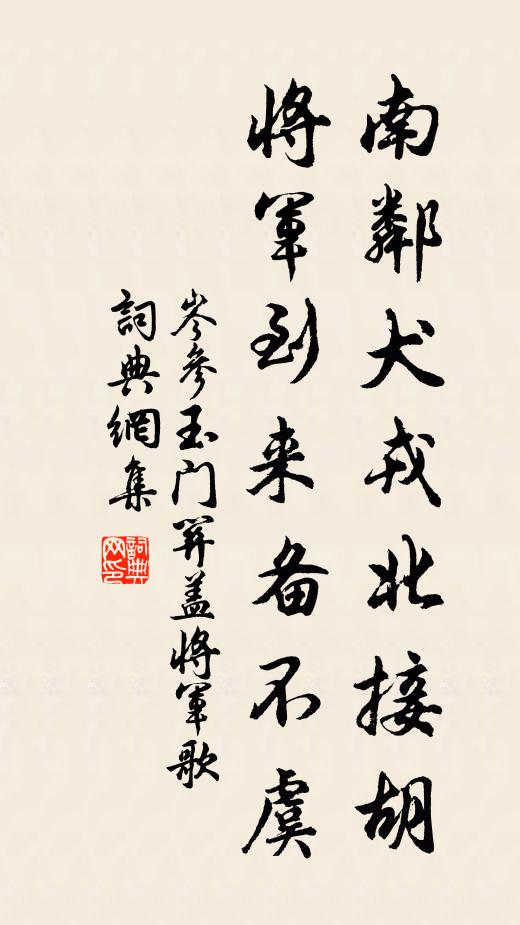 南鄰犬戎北接胡
將軍到来备不虞
岑參玉门関盖將軍歌
詞典網集
詞典网印